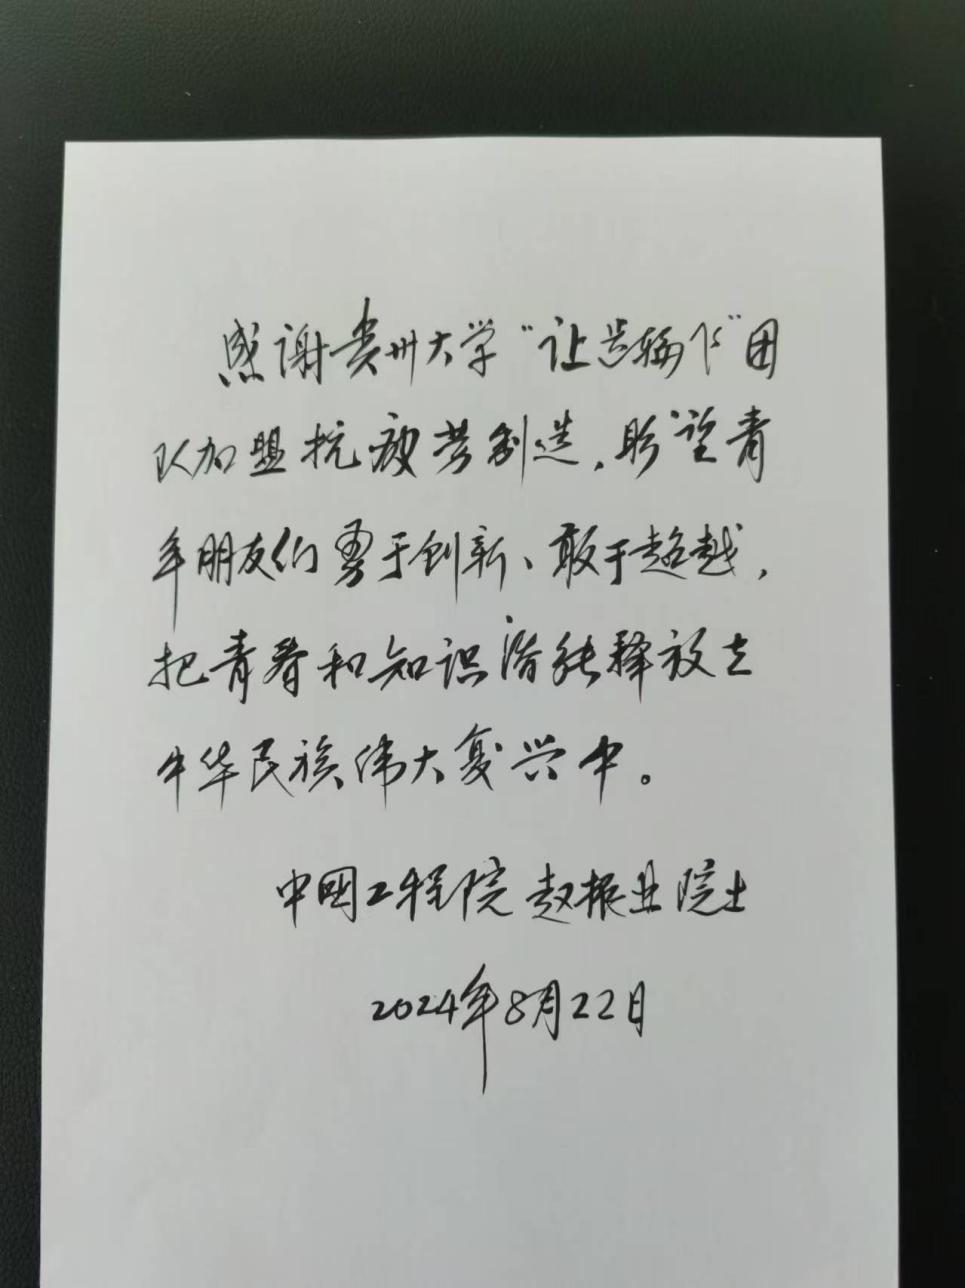 感谢贵州大学“让岩稀下”团
队加盟抗疲劳制造，盼望青
年朋友们勇于创新、敢于超越，
把青春和知识潜能释放在
中华民族伟大复兴中。
中国工程院 赵振业院士
2024年8月22日